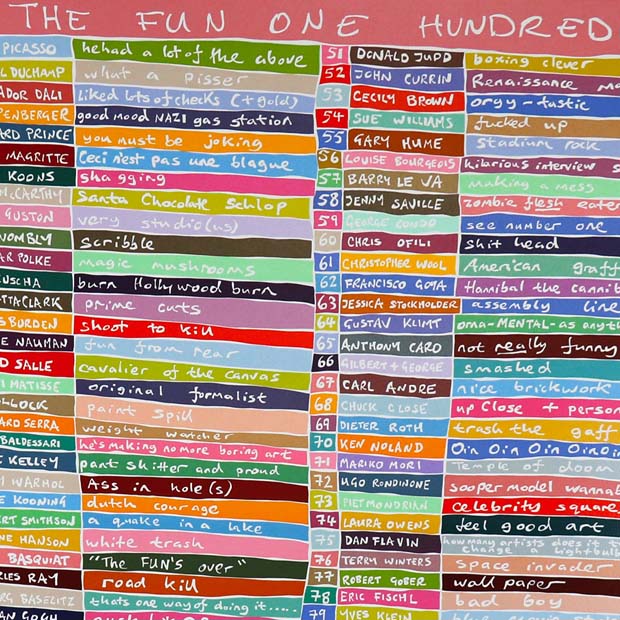 THE FUN ONE HUNDRED
PICASSO he had a lot of the above
L DUCHAMP what a pisser
ADOR DALI liked lots of checks (+ gold)
PENBERGER good mood NAZI gas station
ARD PRINCE you must be joking
MAGRITTE Ceci n'est pas une blague
KOONS shagging
MCCARTHY Santa Chocolate Schlop
GUSTON very studio(us)
WOMBLY scribble
AR POLKE magic mushrooms
USCHA burn Hollywood burn
TTACLARK prime cuts
S BURDEN shoot to kill
E NAUMAN fun from rear
D SALLE cavalier of the canvas
I MATISSE original formalist
LLOCK paint spill
ARD SERRA weight watcher
BALDESSARI he's making no more boring art
E KELLEY pant shitter and proud
Y WARHOL Ass in hole(s)
E KOONING dutch courage
ERT SMITHSON a quake in a lake
NE HANSON white trash
BASQUIAT "The FUN'S over"
LES RAY road kill
RG BASELITZ thats one way of doing it.....
AN GOGH
51 DONALD JUDD boxing clever
52 JOHN CURRIN Renaissance ma
53 CECILY BROWN orgy-tastic
54 SUE WILLIAMS fucked up
55 GARY HUME stadium rock
56 LOUISE BOURGEOIS hilarious interview s
57 BARRY LE VA making a mess
58 JENNY SAVILLE zombie flesh eater
59 GEORGE CONDO see number one
60 CHRIS OFILI shit head
61 CHRISTOPHER WOOL American graff
62 FRANCISCO GOYA Hannibal the cannib
63 JESSICA STOCKHOLDER assembly line
64 GUSTAV KLIMT orna-MENTAL-as anyth
65 ANTHONY CARO not really funny
66 GILBERT+GEORGE smashed
67 CARL ANDRE nice brickwork
68 CHUCK CLOSE up Close + person
69 DIETER ROTH trash the gaff
70 KEN NOLAND Oin Oin Oin Oin Oin
71 MARIKO MORI Temple of doom
72 UGO RONDINONE sooper model wannab
73 PIET MONDRIAN celebrity square
74 LAURA OWENS feel good art
75 DAN FLAVIN how many artists does it t
change a lightbulb
76 TERRY WINTERS space invader
77 ROBERT GOBER wall paper
78 ERIC FISCHL bad boy
79 YVES KLEIN